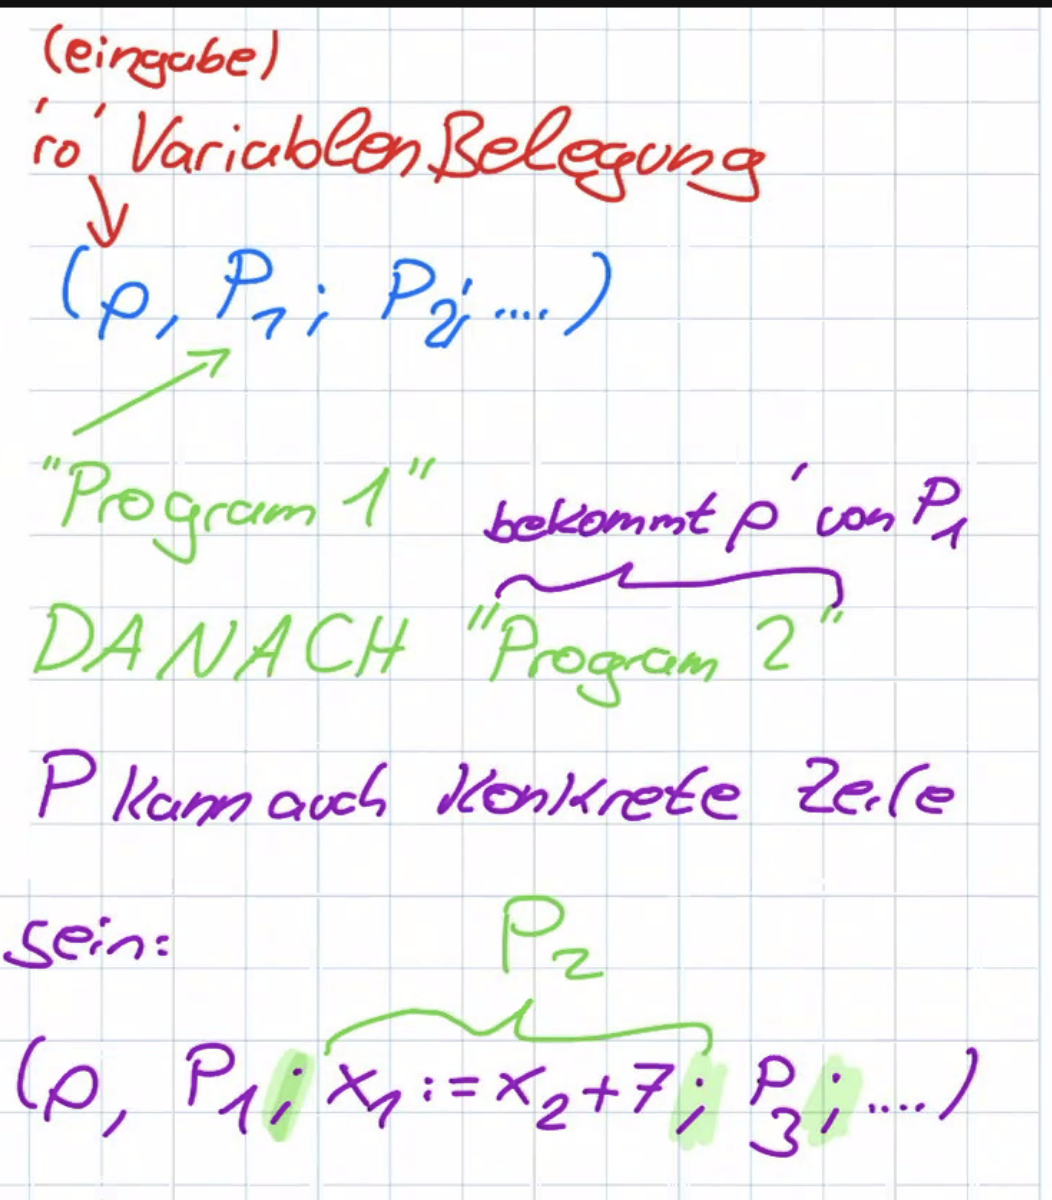 (eingabe)
'ro' VariablenBelegung
(ρ, P₁; P₂; ....)
"Program 1"
bekommt ρ' von P₁
DANACH "Program 2"
P kann auch Konkrete Zeile
sein:
P₂
(ρ, P₁; x₁ := x₂+7; P₃; ....)